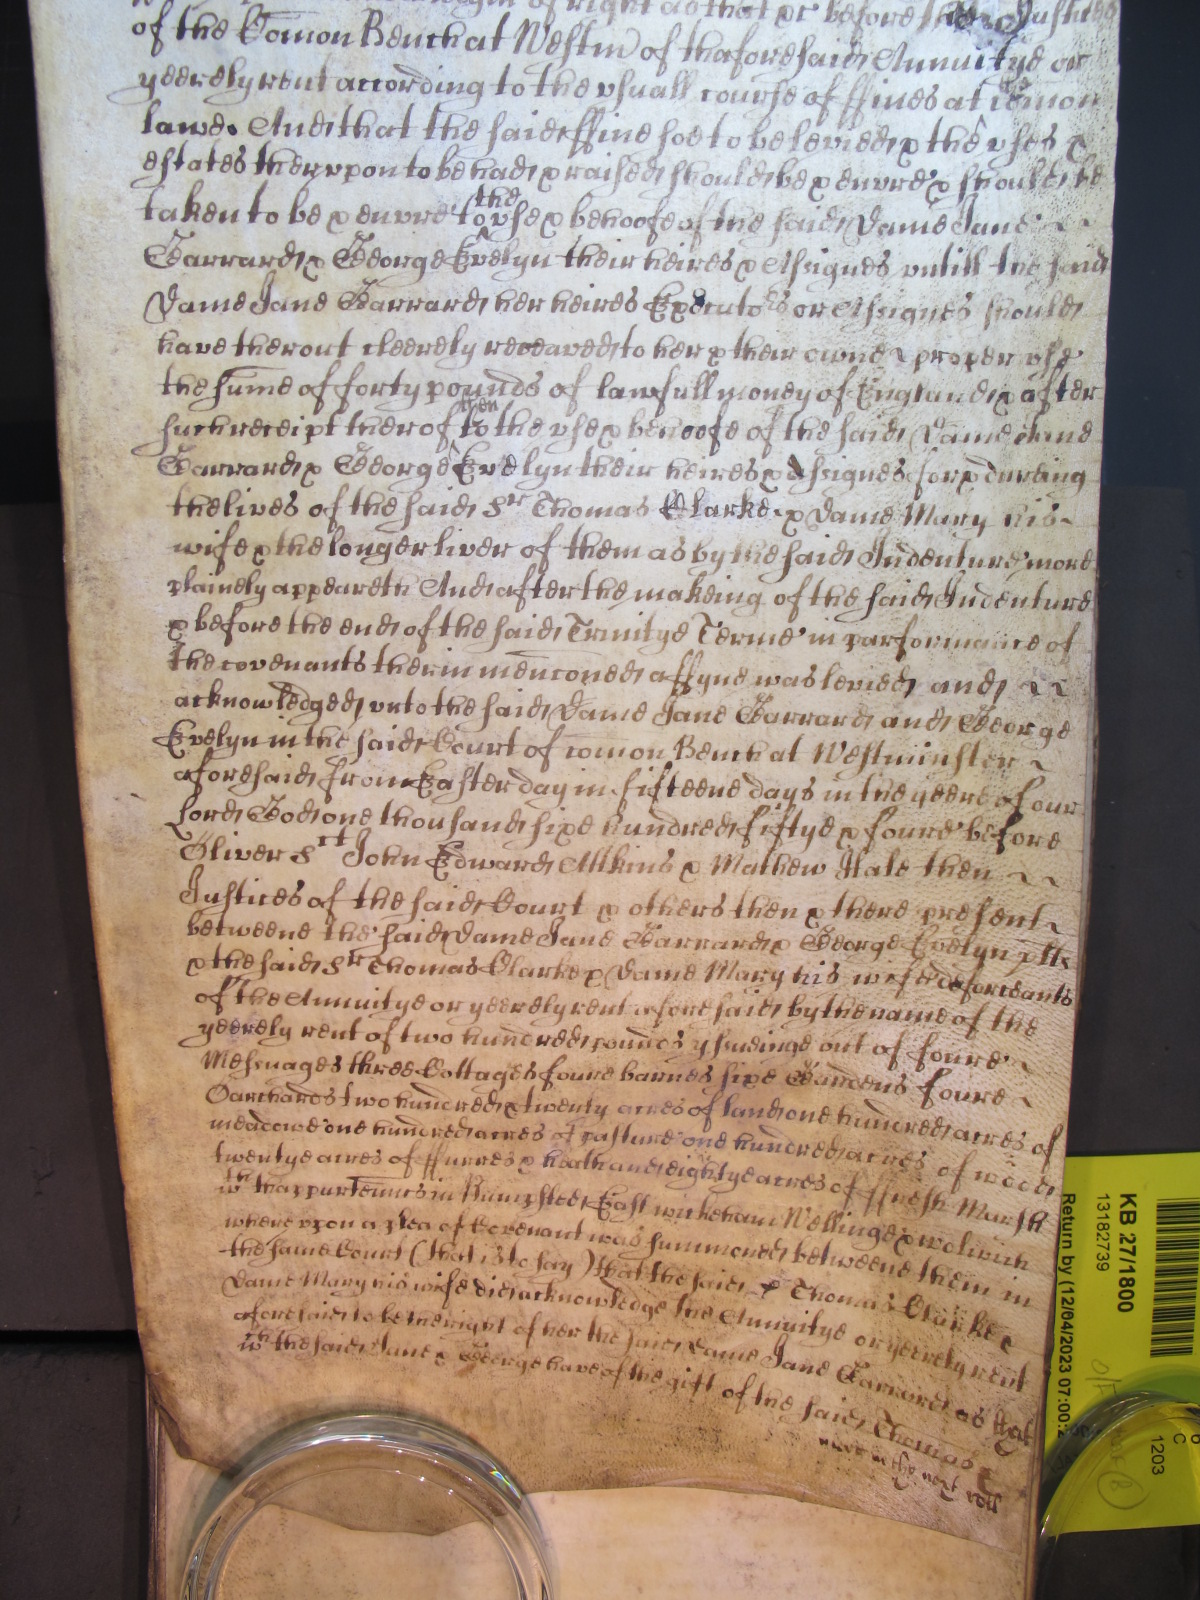 of right as that &c before the Justices
of the Comon Bench at Westm of thaforesaid Annuitye or
yeerely rent according to the usuall course of ffines at comon
lawe. And that the said ffine soe to be levied & the uses &
estates therupon to be had & raised should be & enure & should be
taken to be & enure to the use & behoofe of the said Dame Jane
Garrard & George Evelyn their heires & Assignes untill the said
Dame Jane Garrard her heires Executors or Assignes should
have therout cleerely receaved to her & their owne & proper use
the sume of forty pounds of lawfull money of England & after
such receipt therof then to the use & behoofe of the said Dame Jane
Garrard & George Evelyn their heires & Assignes for & dureing
the lives of the said Sr Thomas Clarke & Dame Mary his
wife & the longer liver of them as by the said Indenture more
plainely appeareth And after the makeing of the said Indenture
& before the end of the said Trinitye Terme in parformance of
the covenants therin mencioned a ffyne was levied and
acknowledged unto the said Dame Jane Garrard and George
Evelyn in the said Court of comon Bench at Westminster
aforesaid from Easter day in fifteene days in the yeere of our
Lord God one thousand sixe hundred fiftye & foure before
Oliver St John Edward Atkins & Mathew Hale then
Justices of the said Court & others then & there present
betweene the said Dame Jane Garrard & George Evelyn plts
& the said Sr Thomas Clarke & Dame Mary his wife deforceants
of the Annuitye or yeerely rent aforesaid by the name of the
yeerely rent of two hundred pounds yssueinge out of foure
Messuages three Cottages foure barnes sixe Gardens foure
Oarchards two hundred & twenty acres of land one hundred acres of
meadowe one hundred acres of pasture one hundred acres of wood
twentye acres of ffurres & heath and eightye acres of ffresh Marsh
wth thappurtenncs in Plumpsteed East wickeham Wellinge & wolwich
whereupon a plea of Covenant was summoned betweene them in
the same Court (that is to say) That the said Sr Thomas Clarke &
Dame Mary his wife did acknowledge the Annuitye or yeerely rent
aforesaid to be the right of her the said Dame Jane Garrard as that
wch the said Jane & George have of the gift of the said Thomas &
more in the next roll
KB 27/1800
13182739
Return by (12/04/2023 07:00:
C
1203